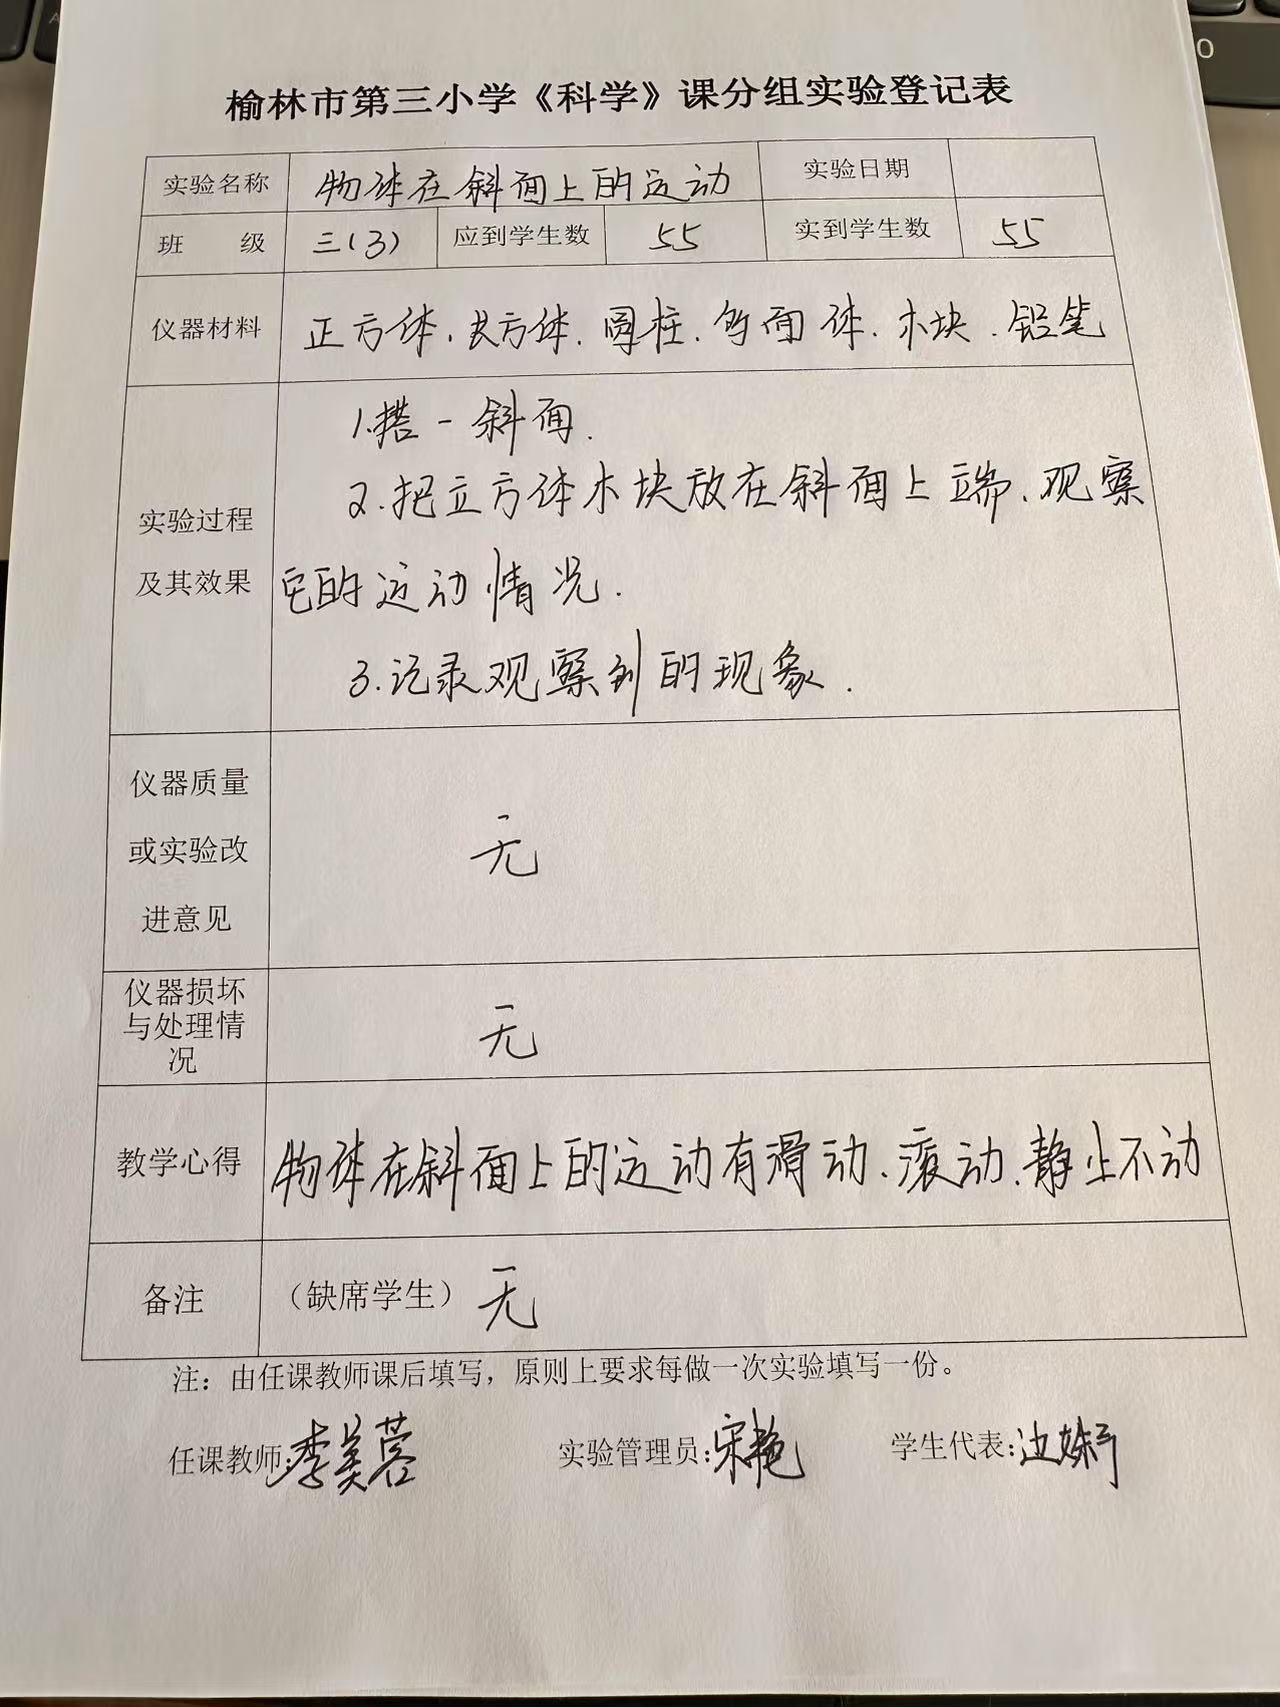 榆林市第三小学《科学》课分组实验登记表
实验名称 物体在斜面上的运动 实验日期
班 级 三(3) 应到学生数 55 实到学生数 55
仪器材料 正方体、长方体、圆柱、多面体、木块、铅笔
1.搭一斜面.
2.把立方体木块放在斜面上端、观察
实验过程
及其效果 它的运动情况.
3.记录观察到的现象.
仪器质量
或实验改 无
进意见
仪器损坏
与处理情 无
况
教学心得 物体在斜面上的运动有滑动、滚动、静止不动
备注 （缺席学生） 无
注：由任课教师课后填写，原则上要求每做一次实验填写一份。
任课教师:李美蓉 实验管理员:宋艳 学生代表: